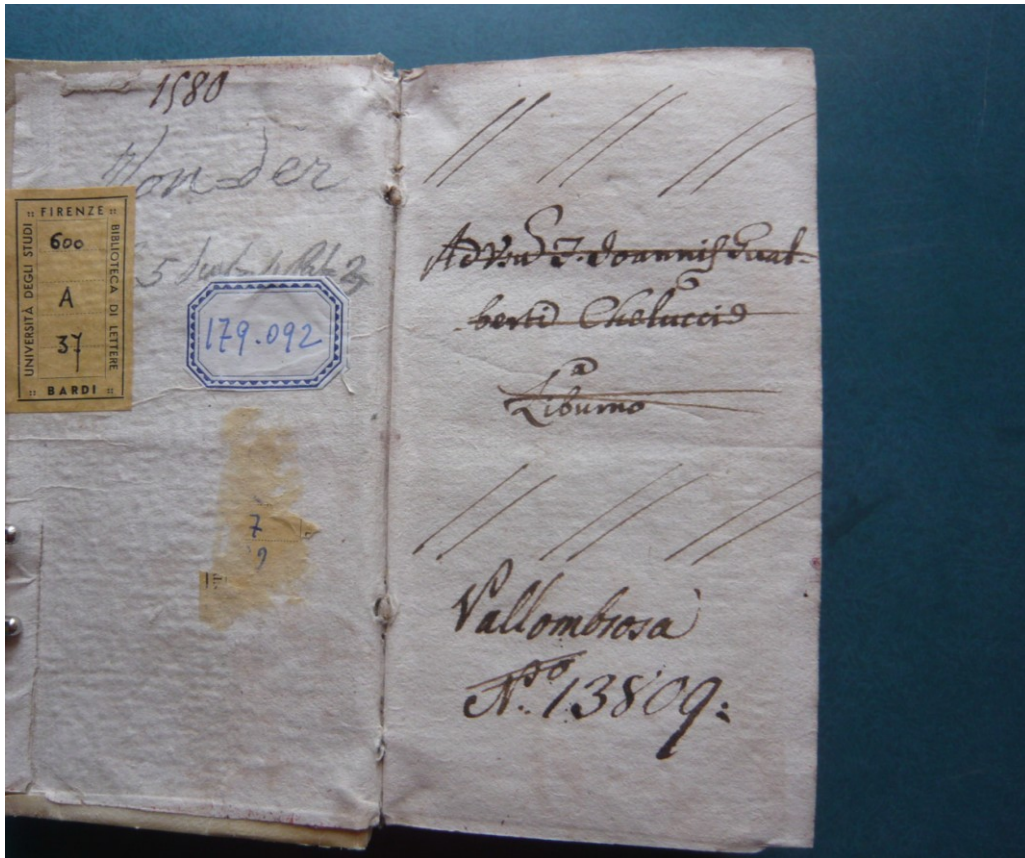 1580
Von der
:: FIRENZE ::
UNIVERSITÀ DEGLI STUDI
BIBLIOTECA DI LETTERE
600
A
37
:: BARDI ::
179.092
7
9
Ad Vsu D. Joannis Gual-
berti Cheluccis
a
Liburno
Vallombrosa
N.ro 13809: